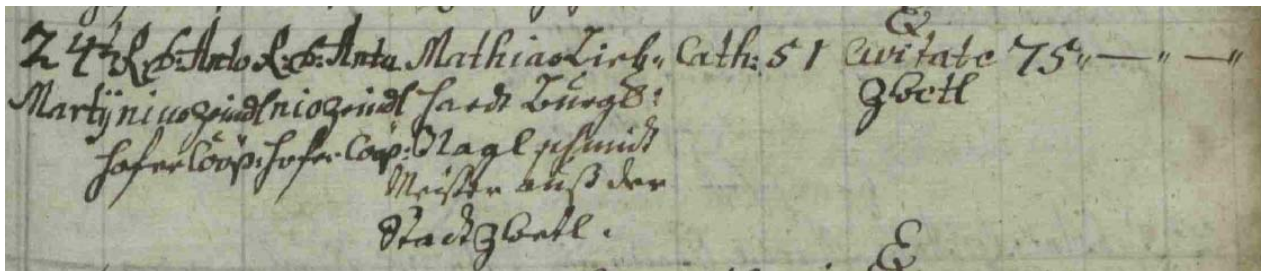 E
24ta R. D. Anto R. D. Anto Mathias Lieb„ Cath: 51 Civitate 75„ — „ — „
Martÿ nius zeindl nios zeindl hardt Burgl: zwetl
hofer Coop: hofer Coop: Nagl schmidt
Meister auß der
Stadt zwetl.
E